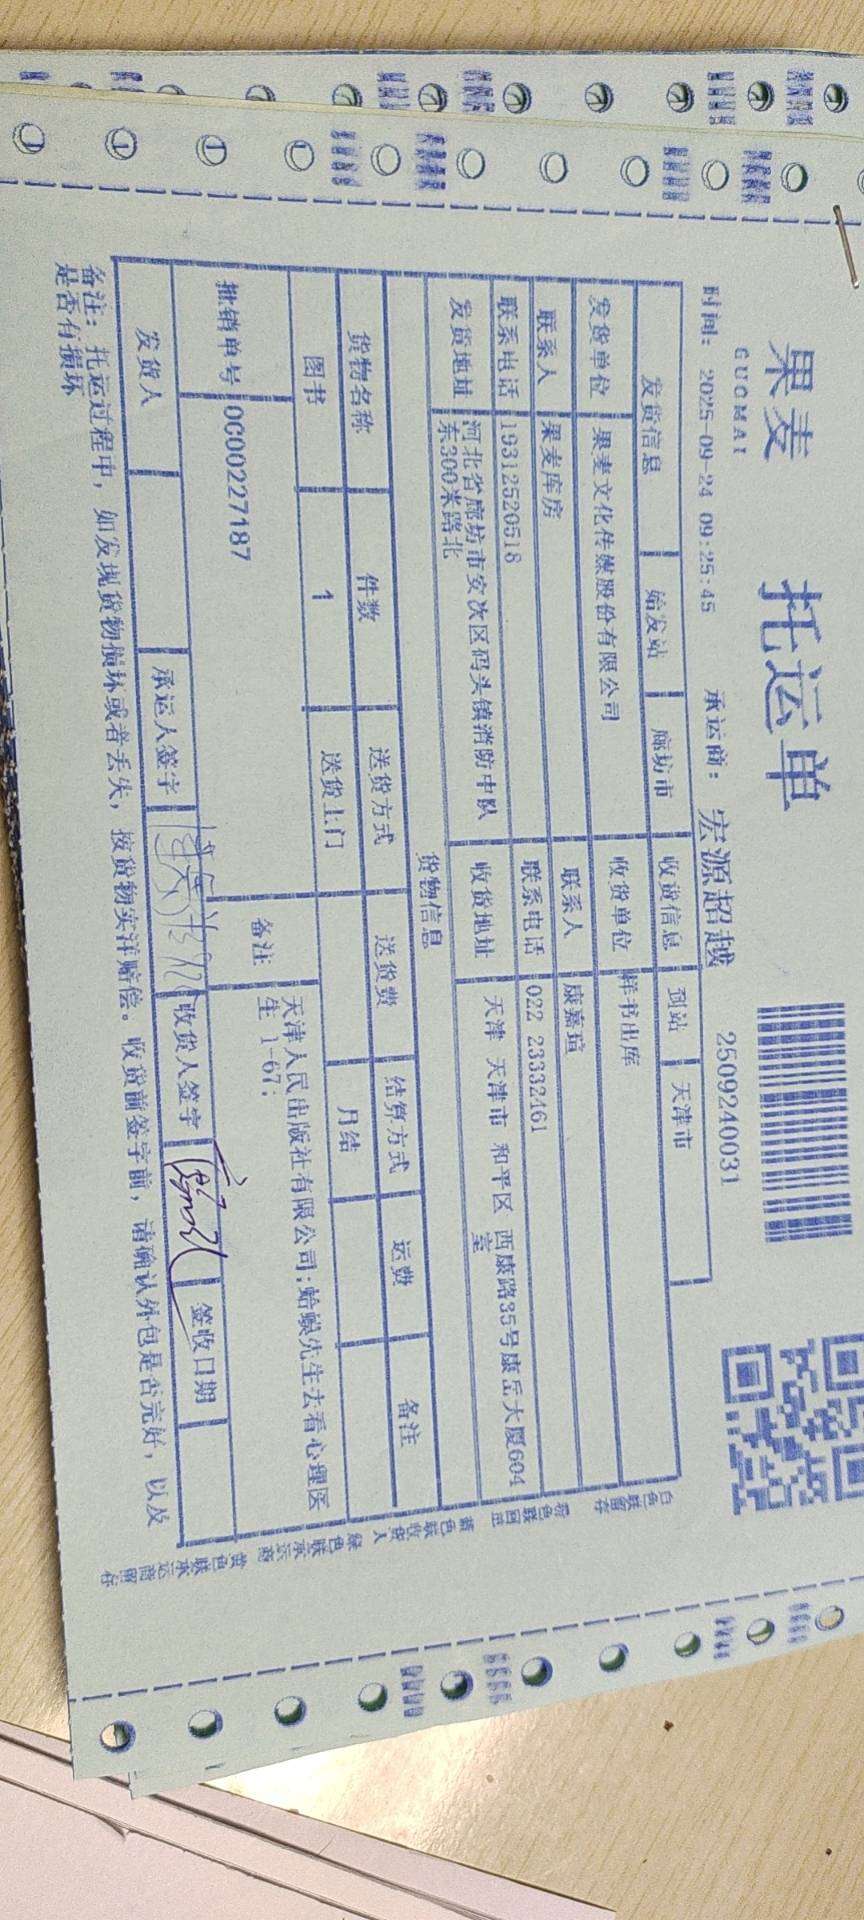 果麦
GUOMAI
托运单
时间: 2025-09-24 09:25:45 承运商: 宏源超越 2509240031
发货信息 始发站 廊坊市 收货信息 到站 天津市
发货单位 果麦文化传媒股份有限公司 收货单位 样书出库
联系人 果麦库房 联系人 康嘉瑄
联系电话 19312520518 联系电话 022 23332461
发货地址 河北省廊坊市安次区码头镇消防中队
东300米路北
收货地址 天津 天津市 和平区 西康路35号康岳大厦604
室
货物信息
货物名称 件数 送货方式 送货费 结算方式 运费 备注
图书 1 送货上门 月结
批销单号 0C00227187 备注 天津人民出版社有限公司;蛤蟆先生去看心理医
生 1-67;
发货人 承运人签字 收货人签字 签收日期
备注: 托运过程中, 如发现货物损坏或者丢失, 按货物实洋赔偿。收货前签字前, 请确认外包是否完好, 以及
是否有损坏
白色联留存
粉色联回签
蓝色联收货人
绿色联承运商
黄色联承运商留存